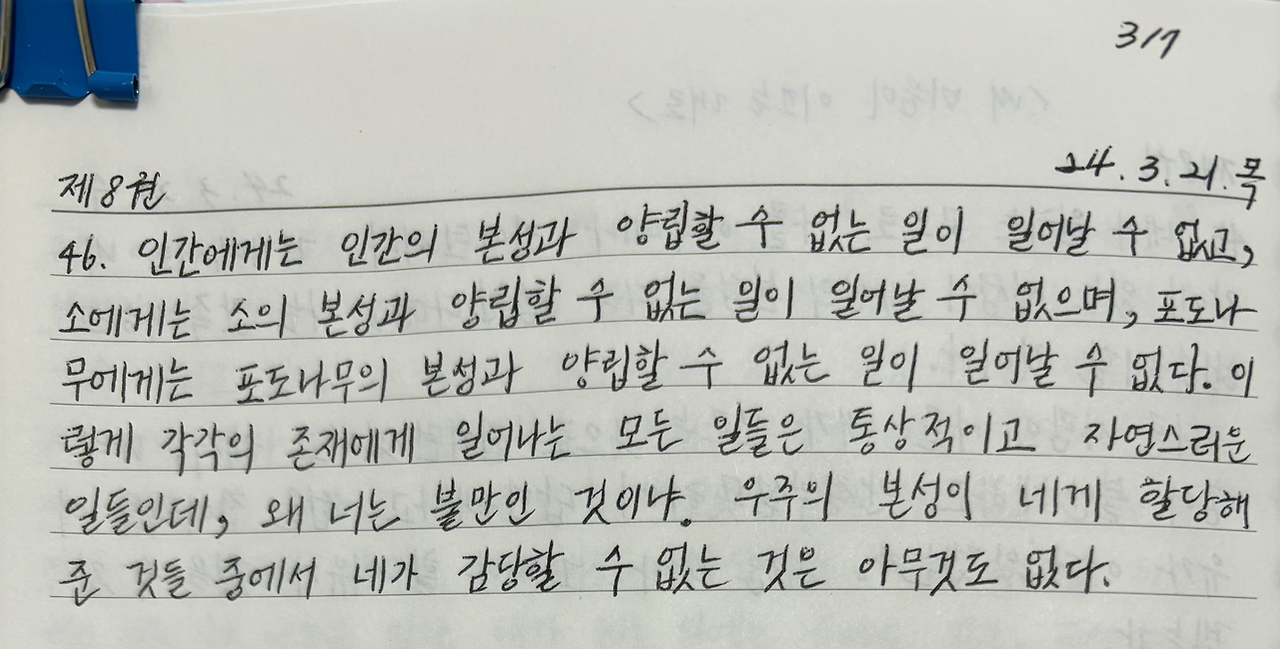 317
제8권
24.3.21.목
46. 인간에게는 인간의 본성과 양립할 수 없는 일이 일어날 수 없고,
소에게는 소의 본성과 양립할 수 없는 일이 일어날 수 없으며, 포도나
무에게는 포도나무의 본성과 양립할 수 없는 일이 일어날 수 없다. 이
렇게 각각의 존재에게 일어나는 모든 일들은 통상적이고 자연스러운
일들인데, 왜 너는 불만인 것이냐. 우주의 본성이 네게 할당해
준 것들 중에서 네가 감당할 수 없는 것은 아무것도 없다.